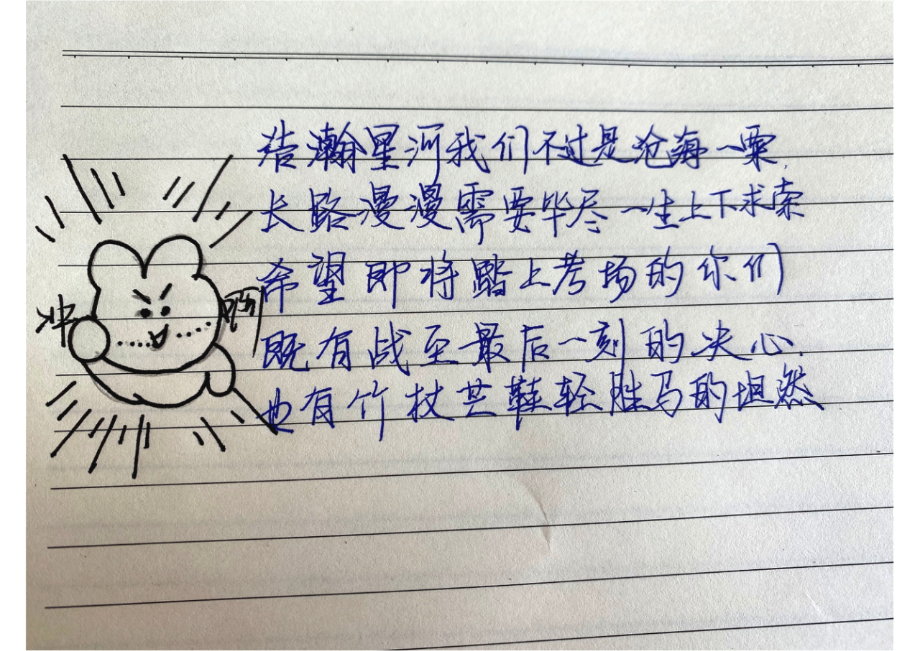 浩瀚星河我们不过是沧海一粟,
长路漫漫需要毕尽一生上下求索
希望即将踏上考场的你们
冲 啊
既有战至最后一刻的决心,
也有竹杖芒鞋轻胜马的坦然